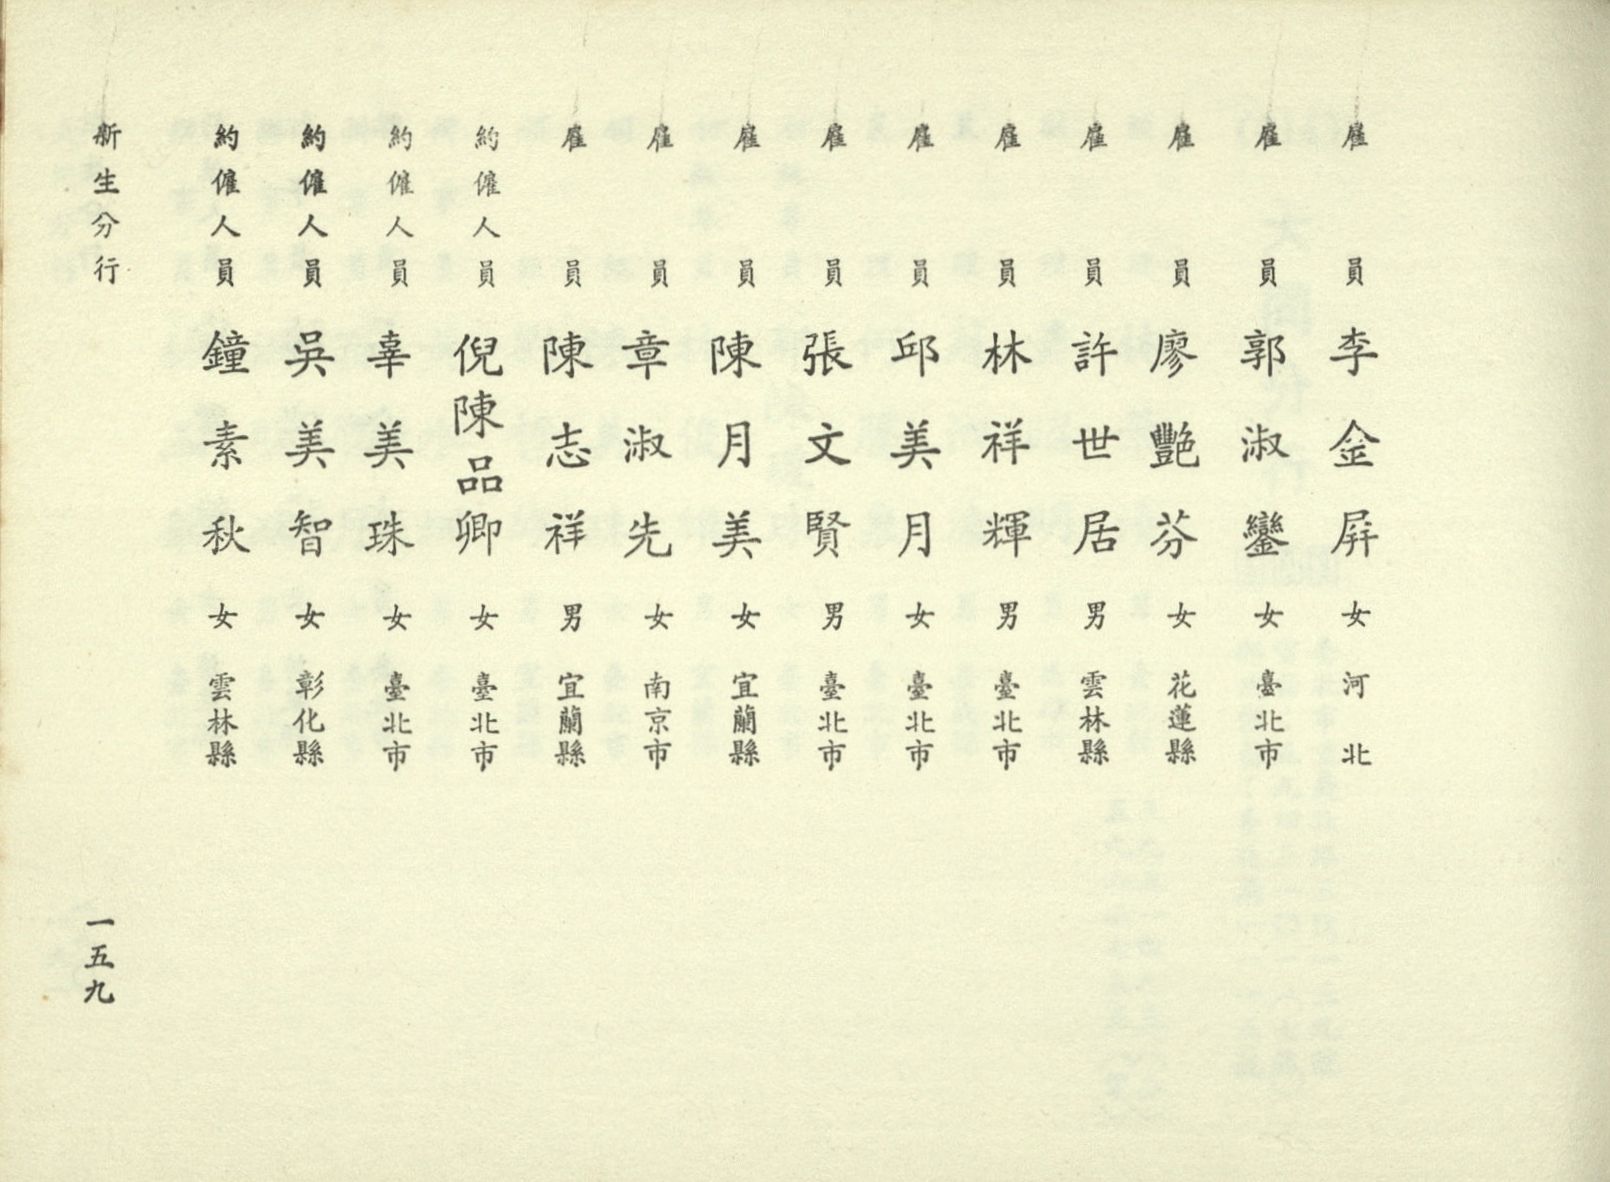 雇員 李金屏 女 河北
雇員 郭淑鑾 女 臺北市
雇員 廖豔芬 女 花蓮縣
雇員 許世居 男 雲林縣
雇員 林祥輝 男 臺北市
雇員 邱美月 女 臺北市
雇員 張文賢 男 臺北市
雇員 陳月美 女 宜蘭縣
雇員 章淑先 女 南京市
雇員 陳志祥 男 宜蘭縣
約僱人員 倪陳品卿 女 臺北市
約僱人員 辜美珠 女 臺北市
約僱人員 吳美智 女 彰化縣
約僱人員 鐘素秋 女 雲林縣
新生分行
一五九